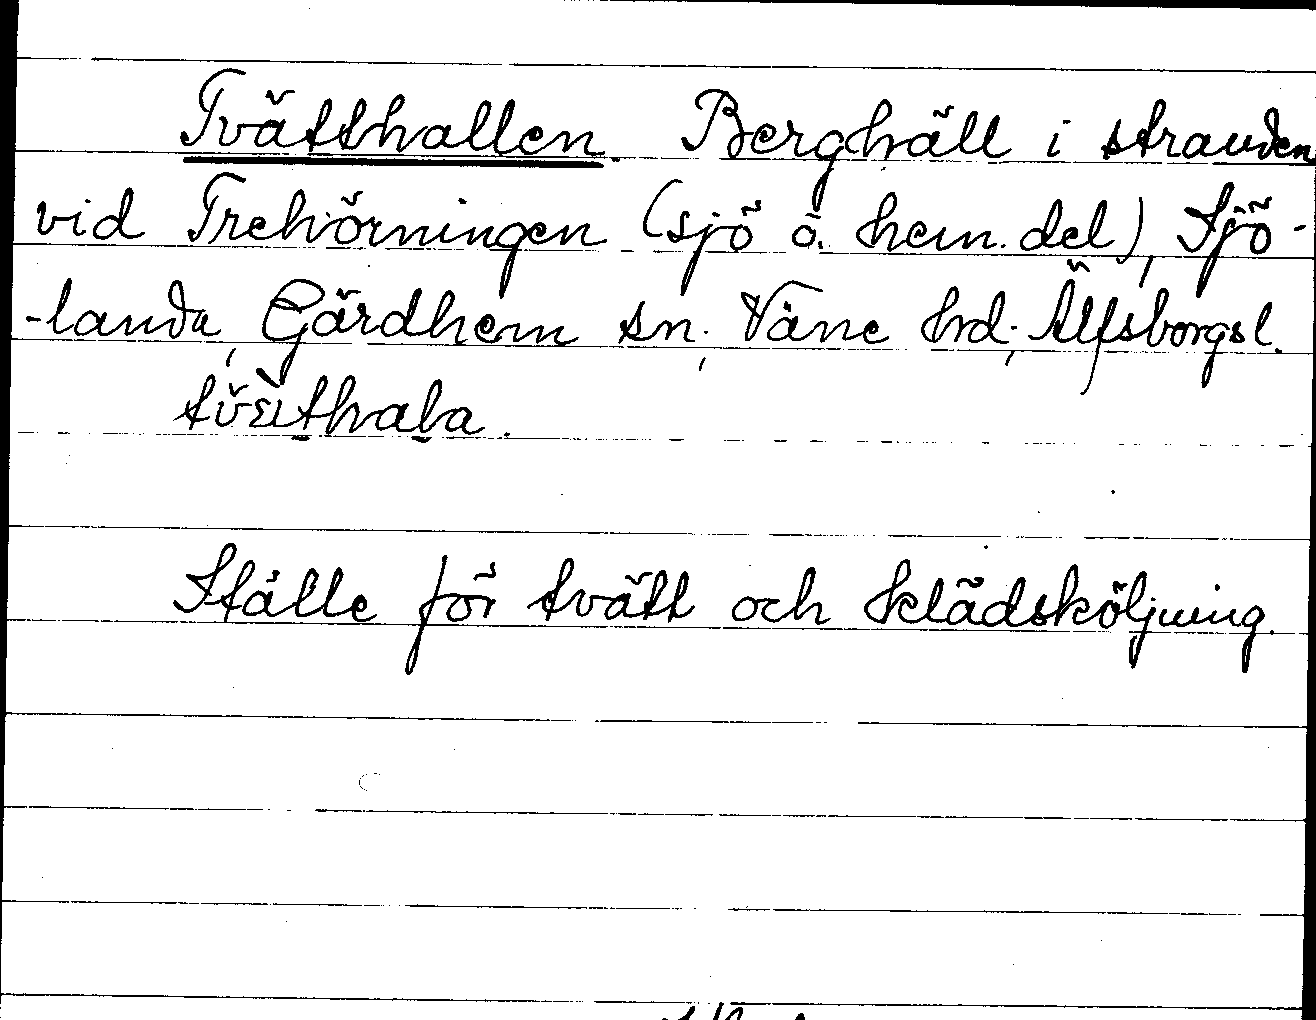 Tvätthallen. Berghäll i stranden
vid Trehörningen (sjö o. hem. del), Sjö-
-landa, Gärdhem sn, Väne hd; Älfsborgs l.
Ställe för tvätt och klädsköljning.